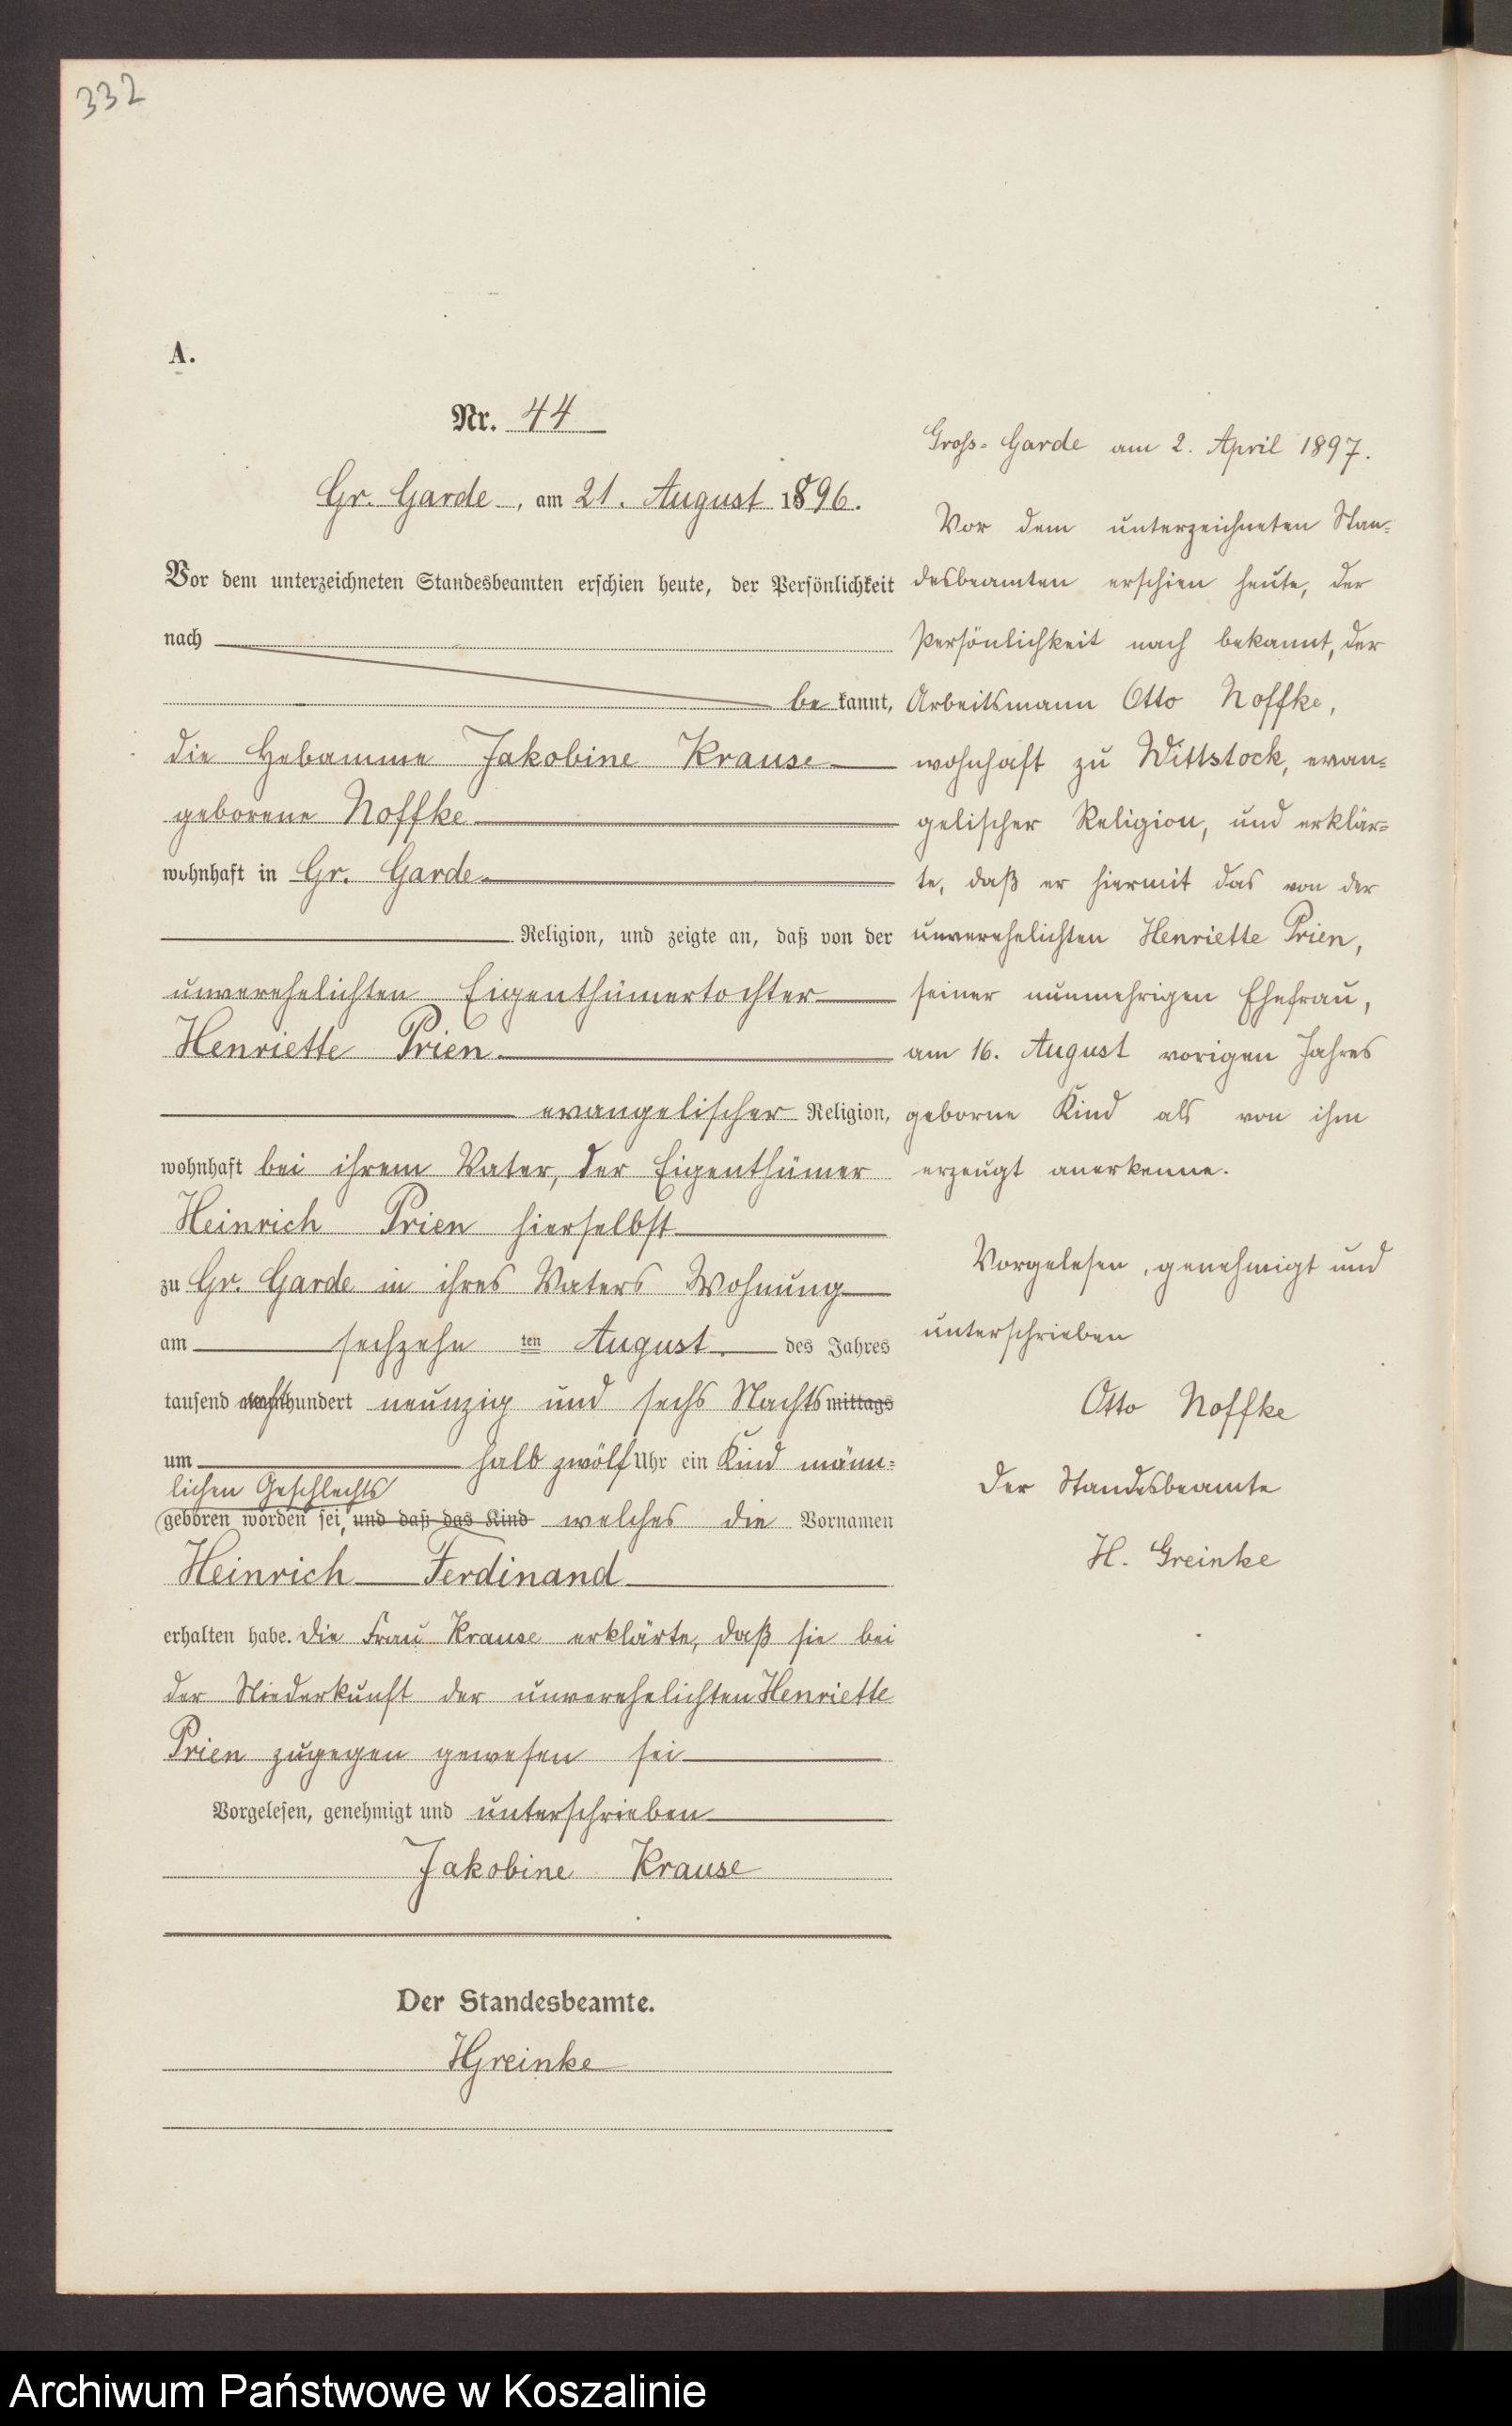 332
A.
Nr. 44
Gr. Garde, am 21. August 1896.
Vor dem unterzeichneten Standesbeamten erschien heute, der Persönlichkeit
nach
be kannt,
die Hebamme Jakobine Krause
geborene Noffke
wohnhaft in Gr. Garde
Religion, und zeigte an, daß von der
unverehelichten Eigenthümertochter
Henriette Prien
evangelischer Religion,
wohnhaft bei ihrem Vater, der Eigenthümer
Heinrich Prien hierselbst
zu Gr. Garde in ihres Vaters Wohnung
am sechzehn ten August des Jahres
tausend achthundert neunzig und sechs Nachts mittags
um halb zwölf Uhr ein Kind männ=
lichen Geschlechts
geboren worden sei, und daß das Kind welches die Vornamen
Heinrich Ferdinand
erhalten habe. Die Frau Krause erklärte, daß sie bei
der Niederkunft der unverehelichten Henriette
Prien zugegen gewesen sei
Vorgelesen, genehmigt und unterschrieben
Jakobine Krause
Der Standesbeamte.
HGreinke
Gross=Garde am 2. April 1897.
Vor dem unterzeichneten Stan=
desbeamten erschien heute, der
Persönlichkeit nach bekannt, der
Arbeitsmann Otto Noffke,
wohnhaft zu Wittstock, evan=
gelischer Religion, und erklär=
te, daß er hiermit das von der
unverehelichten Henriette Prien,
seiner nunmehrigen Ehefrau,
am 16. August vorigen Jahres
geborne Kind als von ihm
erzeugt anerkenne.
Vorgelesen, genehmigt und
unterschrieben
Otto Noffke
Der Standesbeamte
H. Greinke
Archiwum Państwowe w Koszalinie